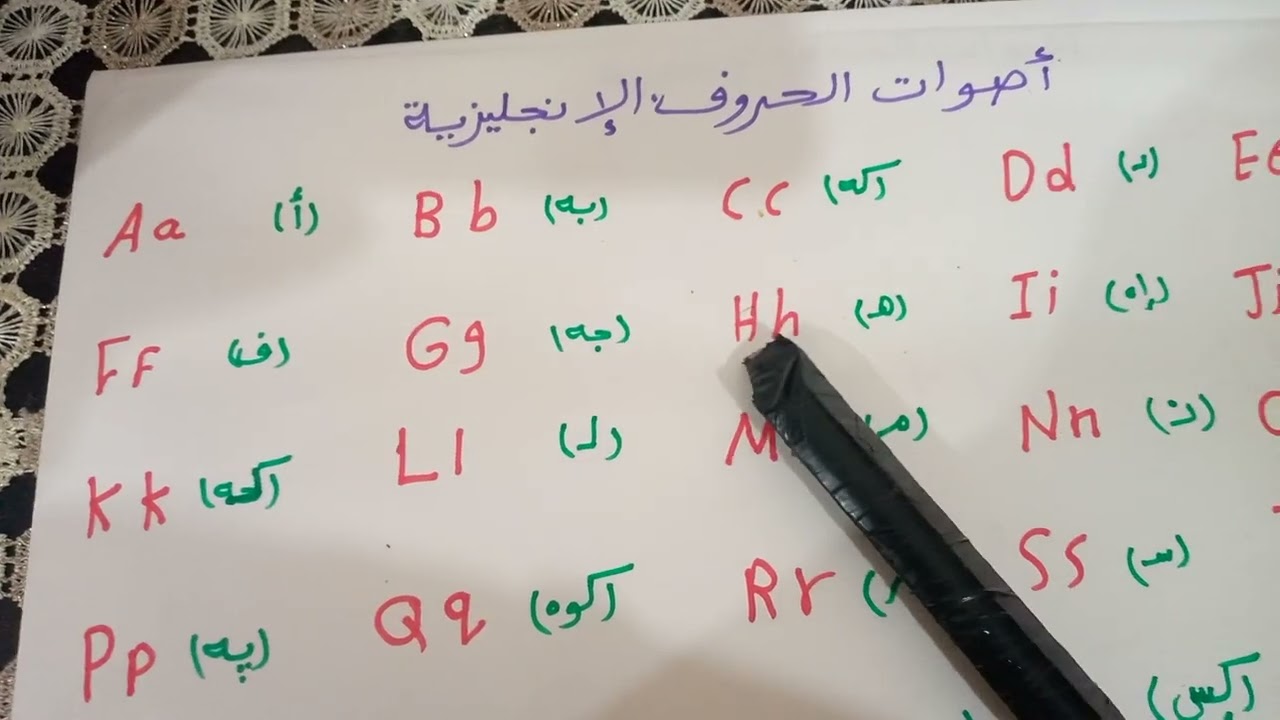 أصوات الحروف الإنجليزية
Aa (أ) Bb (به) Cc (كه) Dd (د) Ee
Ff (ف) Gg (جه) Hh (هـ) Ii (إه)
Kk (كه) Ll (لـ) M (مـ) Nn (ن)
Pp (په) Qq (كوه) Rr Ss (سـ)
(كس)